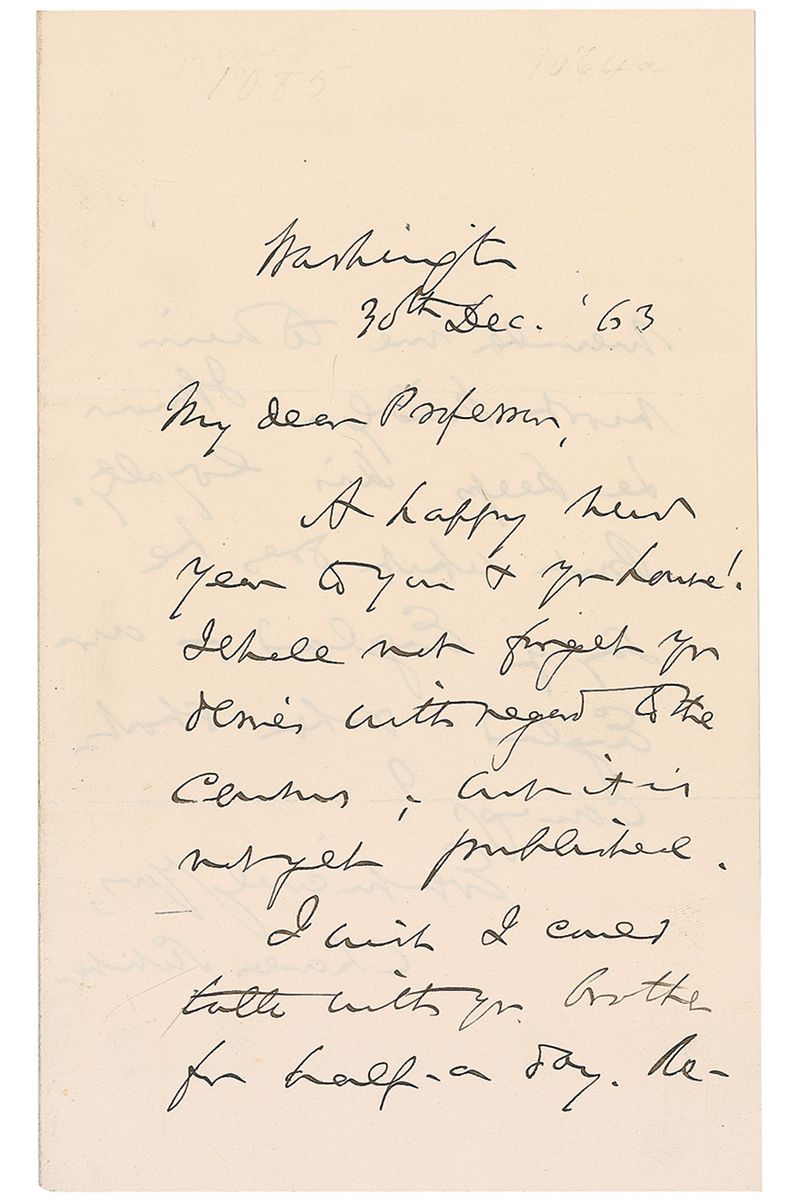 1085 1064a
Washington
30th Dec. '63
My dear Professor,
A happy new
year to you & yr house!
I shall not forget yr
desires with regard to the
Census; but it is
not yet published.
I wish I could
talk with yr. brother
for half-a day. Re-